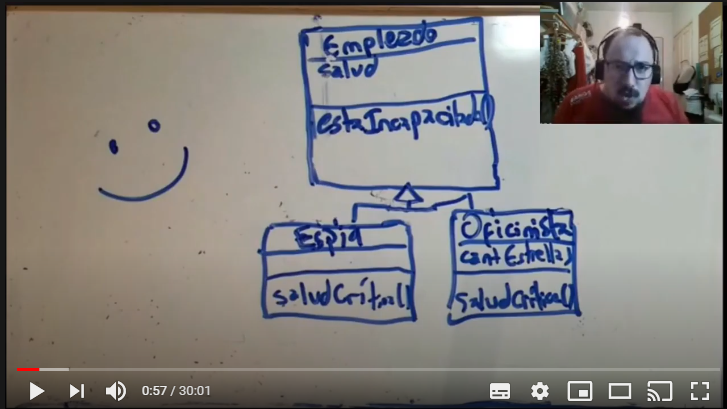 Empleado
salud
estaIncapacitado()
Espia
saludCritica()
Oficinista
cantEstrellas
saludCritica()
0:57 / 30:01